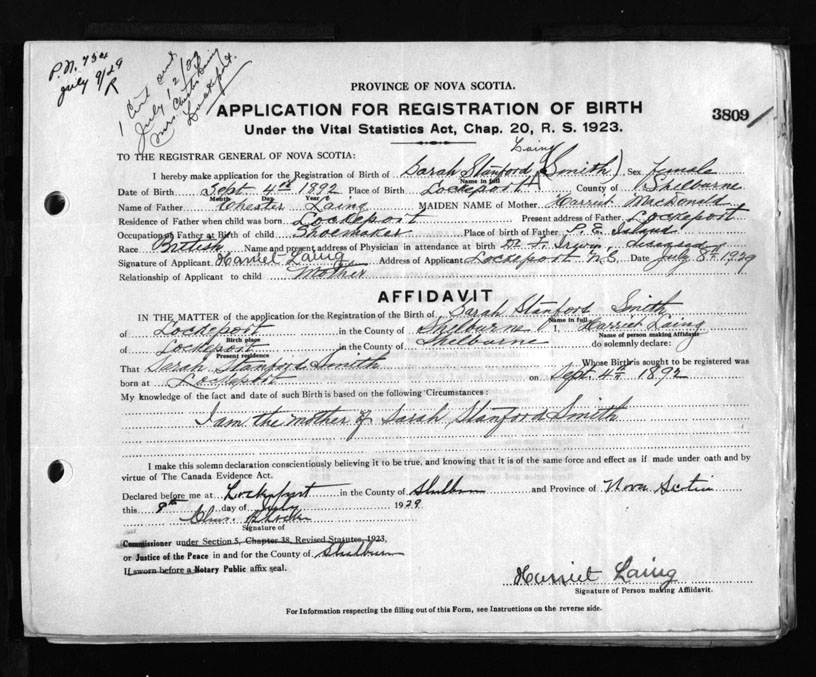 P.N. 734
July 9/29
R
1 Cert and
July 12/29
Mrs
Lockeport.
PROVINCE OF NOVA SCOTIA.
APPLICATION FOR REGISTRATION OF BIRTH
3809
Under the Vital Statistics Act, Chap. 20, R. S. 1923.
TO THE REGISTRAR GENERAL OF NOVA SCOTIA:
Laing
I hereby make application for the Registration of Birth of Sarah Stanford (Smith) Sex Female
Name in full
Date of Birth Sept 4th 1892 Place of Birth Lockeport County of Shelburne
Month Day Year
Name of Father Chester Laing MAIDEN NAME of Mother Harriet MacDonald
Residence of Father when child was born Lockeport Present address of Father Lockeport
Occupation of Father at Birth of child Shoemaker Place of birth of Father P.E. Island
Race British Name and present address of Physician in attendance at birth Dr Irwin, diseased
Signature of Applicant Harriet Laing Address of Applicant Lockeport N.S. Date July 8th 1929
Relationship of Applicant to child Mother
AFFIDAVIT
IN THE MATTER of the application for the Registration of Birth of Sarah Stanford Smith
Name in full
of Lockeport in the County of Shelburne I, Harriet Laing
Birth place Name of person making Affidavit
of Lockeport in the County of Shelburne do solemnly declare:
Present residence
That Sarah Stanford Smith Whose Birth is sought to be registered was
born at Lockeport on Sept. 4th 1892
My knowledge of the fact and date of such Birth is based on the following Circumstances:
I am the mother of Sarah Stanford Smith
I make this solemn declaration conscientiously believing it to be true, and knowing that it is of the same force and effect as if made under oath and by
virtue of The Canada Evidence Act.
Declared before me at Lockeport in the County of Shelburn and Province of Nova Scotia
this 8th day of July 1929
Chas. Locke
Signature of
Commissioner under Section 5, Chapter 38, Revised Statutes, 1923,
or Justice of the Peace in and for the County of Shelburn
If sworn before a Notary Public affix seal.
Harriet Laing
Signature of Person making Affidavit.
For Information respecting the filling out of this Form, see Instructions on the reverse side.